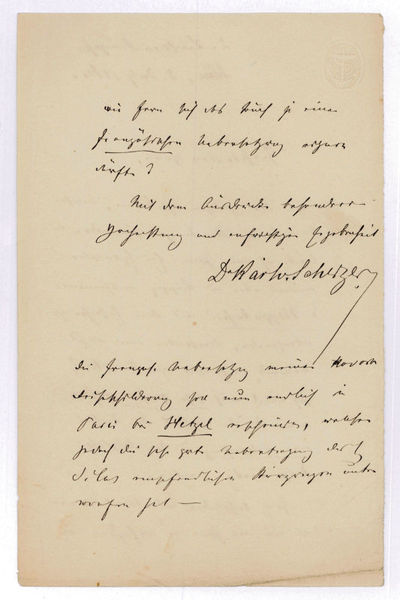 wie fern sich das Buch zu einer
französischen Uebersetzung eignen
dürfte?
Mit dem Ausdrucke besonderer
Hochachtung und aufrichtiger Ergebenheit
Dr Karl v. Scherzer
Die französ. Uebersetzung meiner Novara
Reiseschilderung soll nun endlich in
Paris bei Hetzel erscheinen, welcher
jedoch die sehr gute Uebertragung des
empfindlichen Kürzungen unter
worfen hat —